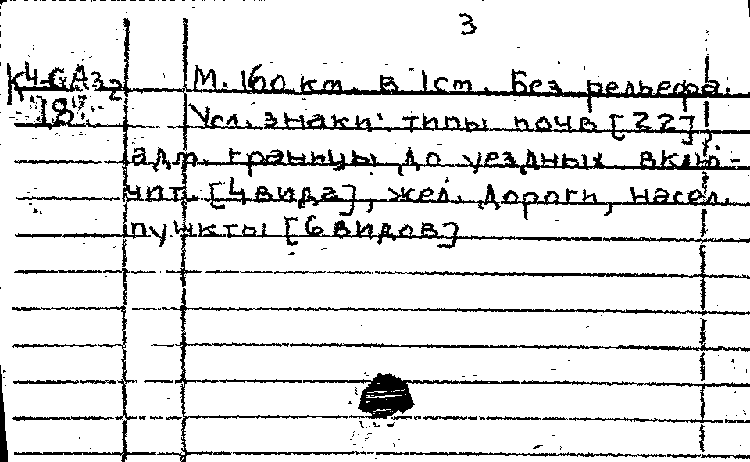 3
К4-GАз2 М. 160 км. в 1 cm. Без рельефа.
18 Усл. знаки: типы почв [22],
адм. границы до уездных вклю-
чит. [4 вида], жел. дороги, насел.
пункты [6 видов]